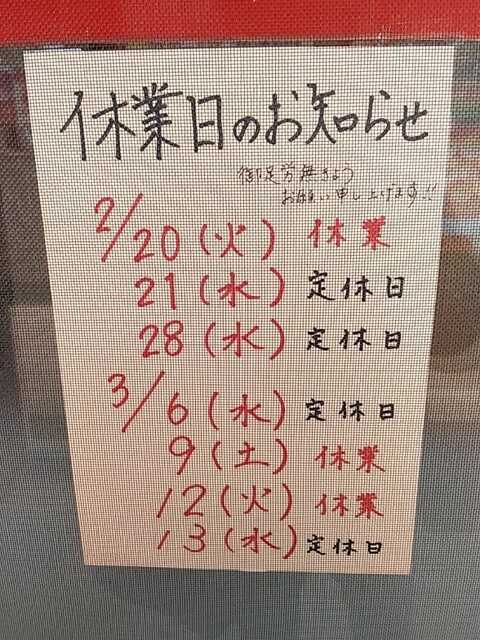 休業日のお知らせ
御足労無きよう
お願い申し上げます!!
2/20(火) 休業
21(水) 定休日
28(水) 定休日
3/6(水) 定休日
9(土) 休業
12(火) 休業
13(水) 定休日